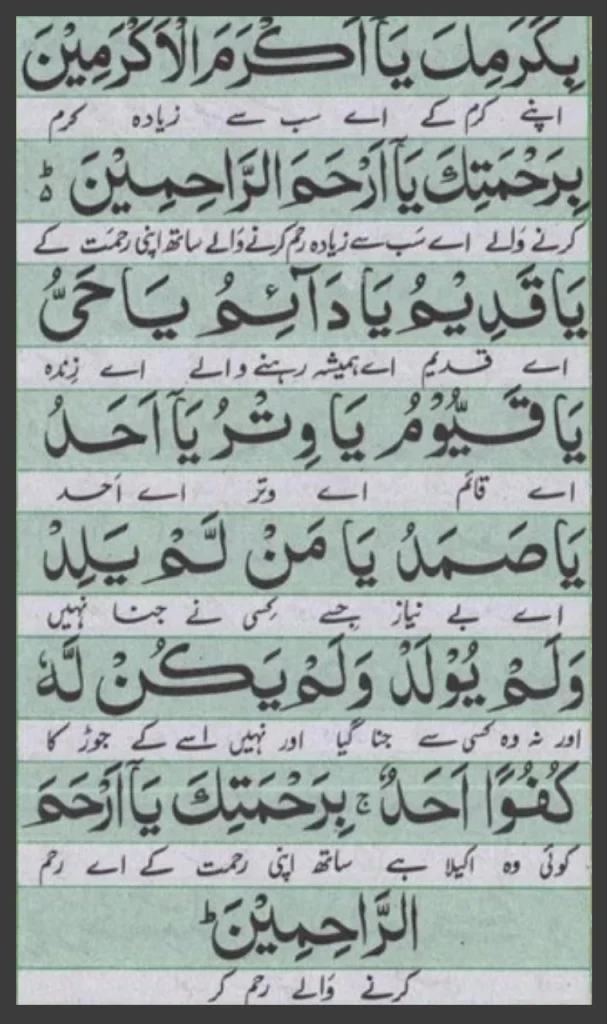 بِكَرَمِكَ يَآ اَكْرَمَ الْاَكْرَمِيْنَ
اپنے کرم کے اے سب سے زیادہ کرم
بِرَحْمَتِكَ يَآ اَرْحَمَ الرَّاحِمِيْنَ ؕ ۵
کرنے وَالے اے سَب سے زیادہ رحم کرنے وَالے ساتھ اپنی رحمَت کے
يَا قَدِيْمُ يَا دَآئِمُ يَا حَيُّ
اے قدیم اے ہمیشہ رہنے والے اے زِندہ
يَا قَيُّوْمُ يَا وِتْرُ يَآ اَحَدُ
اے قائم اے وتر اے اَحد
يَا صَمَدُ يَا مَنْ لَّمْ يَلِدْ
اے بے نیاز جسے کِسی نے جنا نہیں
وَلَمْ يُوْلَدْ وَلَمْ يَكُنْ لَّهٗ
اور نہ وہ کسی سے جنا گیا اور نہیں اسے کے جوڑ کا
كُفُوًا اَحَدٌ ۚ بِرَحْمَتِكَ يَآ اَرْحَمَ
کوئی وہ اکیلا ہے ساتھ اپنی رحمت کے اے رحم
الرَّاحِمِيْنَ ؕ
کرنے وَالے رحم کر